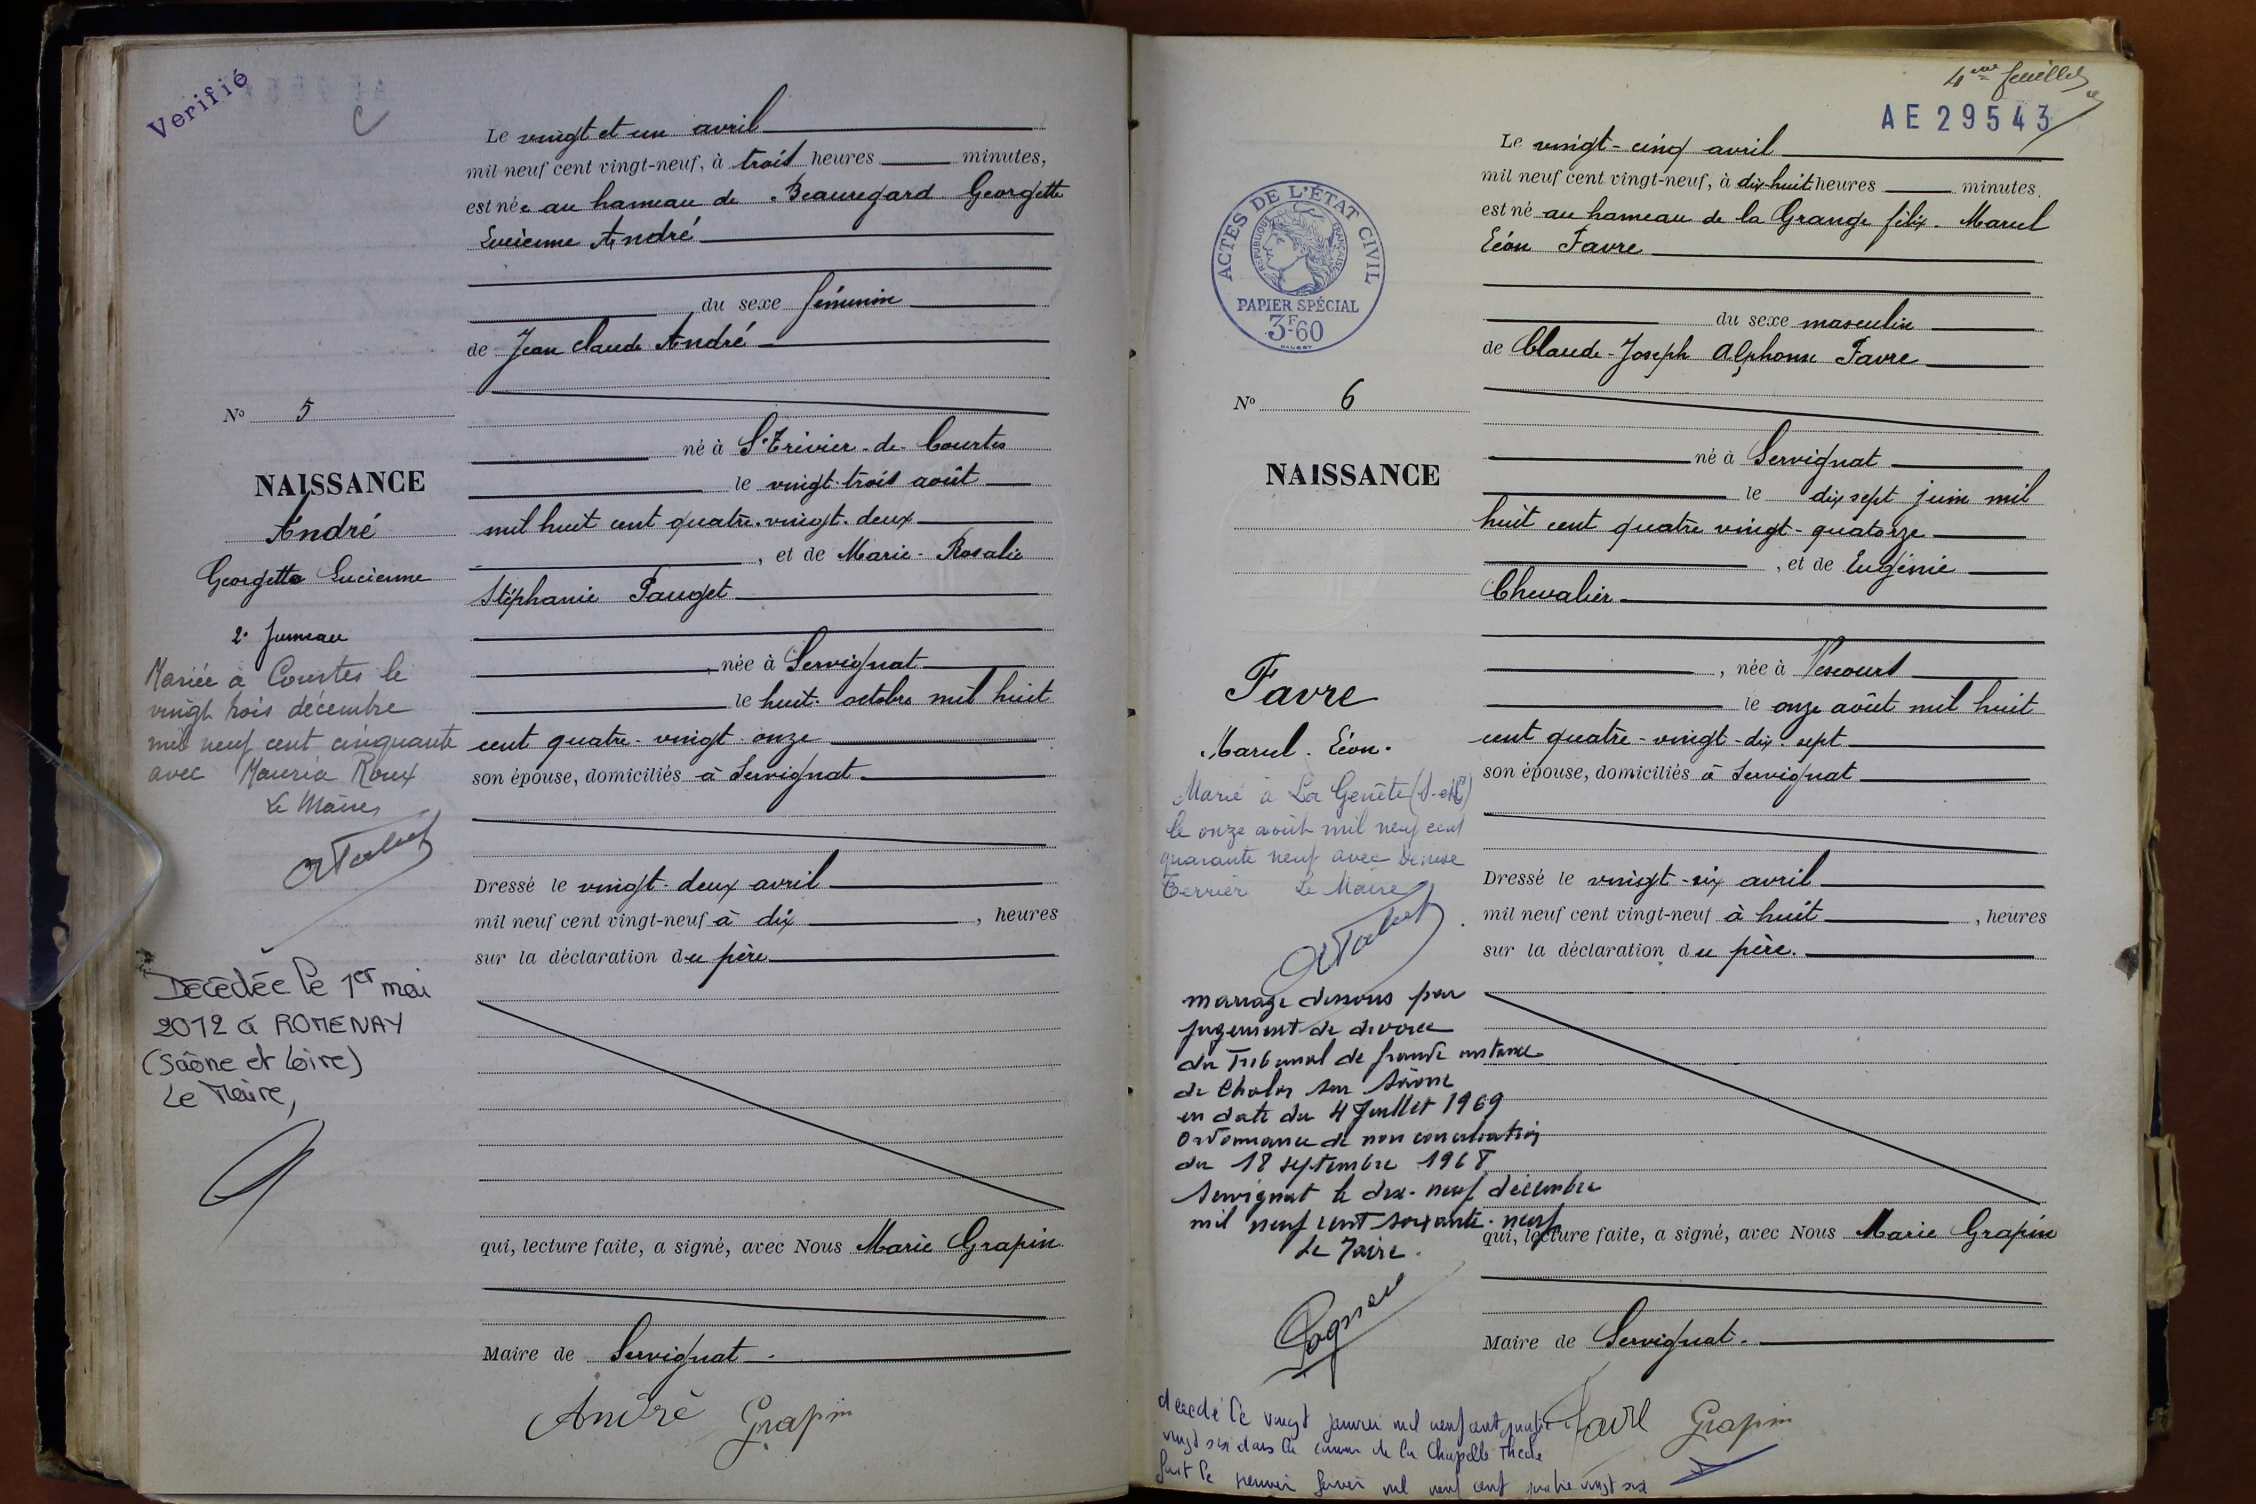 Verifié
C
Le vingt et un avril
mil neuf cent vingt-neuf, à trois heures minutes,
est née au hameau de Beauregard Georgette
Lucienne André
du sexe féminin
de Jean Claude André
né à St Trivier-de-Courtes
le vingt-trois août
mil huit cent quatre-vingt-deux
, et de Marie-Rosalie
Stéphanie Pauget
, née à Servignat
le huit octobre mil huit
cent quatre-vingt-onze
son épouse, domiciliés à Servignat
Dressé le vingt-deux avril
mil neuf cent vingt-neuf à dix , heures
sur la déclaration du père
qui, lecture faite, a signé, avec Nous Marie Grapin
Maire de Servignat.
André Grapin
No 5
NAISSANCE
André
Georgette Lucienne
2e Jumeau
Mariée à Courtes le
vingt trois décembre
mil neuf cent cinquante
avec Roux
Le Maire,
Décédée le 1er mai
2012 à ROMENAY
(Saône et Loire)
Le Maire,
4eme feuillet
AE 29543
ACTES DE L'ÉTAT CIVIL
RÉPUBLIQUE FRANÇAISE
PAPIER SPÉCIAL
3F-60
Le vingt-cinq avril
mil neuf cent vingt-neuf, à dix-huit heures minutes
est né au hameau de la Grange félix. Marcel
Léon Favre
du sexe masculin
de Claude-Joseph Alphonse Favre
né à Servignat
le dix sept juin mil
huit cent quatre vingt-quatorze
, et de Eugénie
Chevalier
, née à Vescours
le onze août mil huit
cent quatre-vingt-dix-sept
son épouse, domiciliés à Servignat
Dressé le vingt-six avril
mil neuf cent vingt-neuf à huit , heures
sur la déclaration du père.
qui, lecture faite, a signé, avec Nous Marie Grapin
Maire de Servignat.
Favre Grapin
No 6
NAISSANCE
Favre
Marcel-Léon.
Marié à La Genête (S-et-L)
le onze août mil neuf cent
quarante neuf avec Denise
Terrier Le Maire
mariage dissous par
jugement de divorce
du Tribunal de grande instance
de Chalon sur Saône
en date du 4 Juillet 1969
Ordonnance de non conciliation
du 18 septembre 1968
Servignat le dix-neuf décembre
mil neuf cent soixante-neuf
Le Maire.
décédé le vingt janvier mil neuf cent quatre
vingt six dans la commune de la Chapelle Thècle
fait le premier février mil neuf cent quatre vingt six